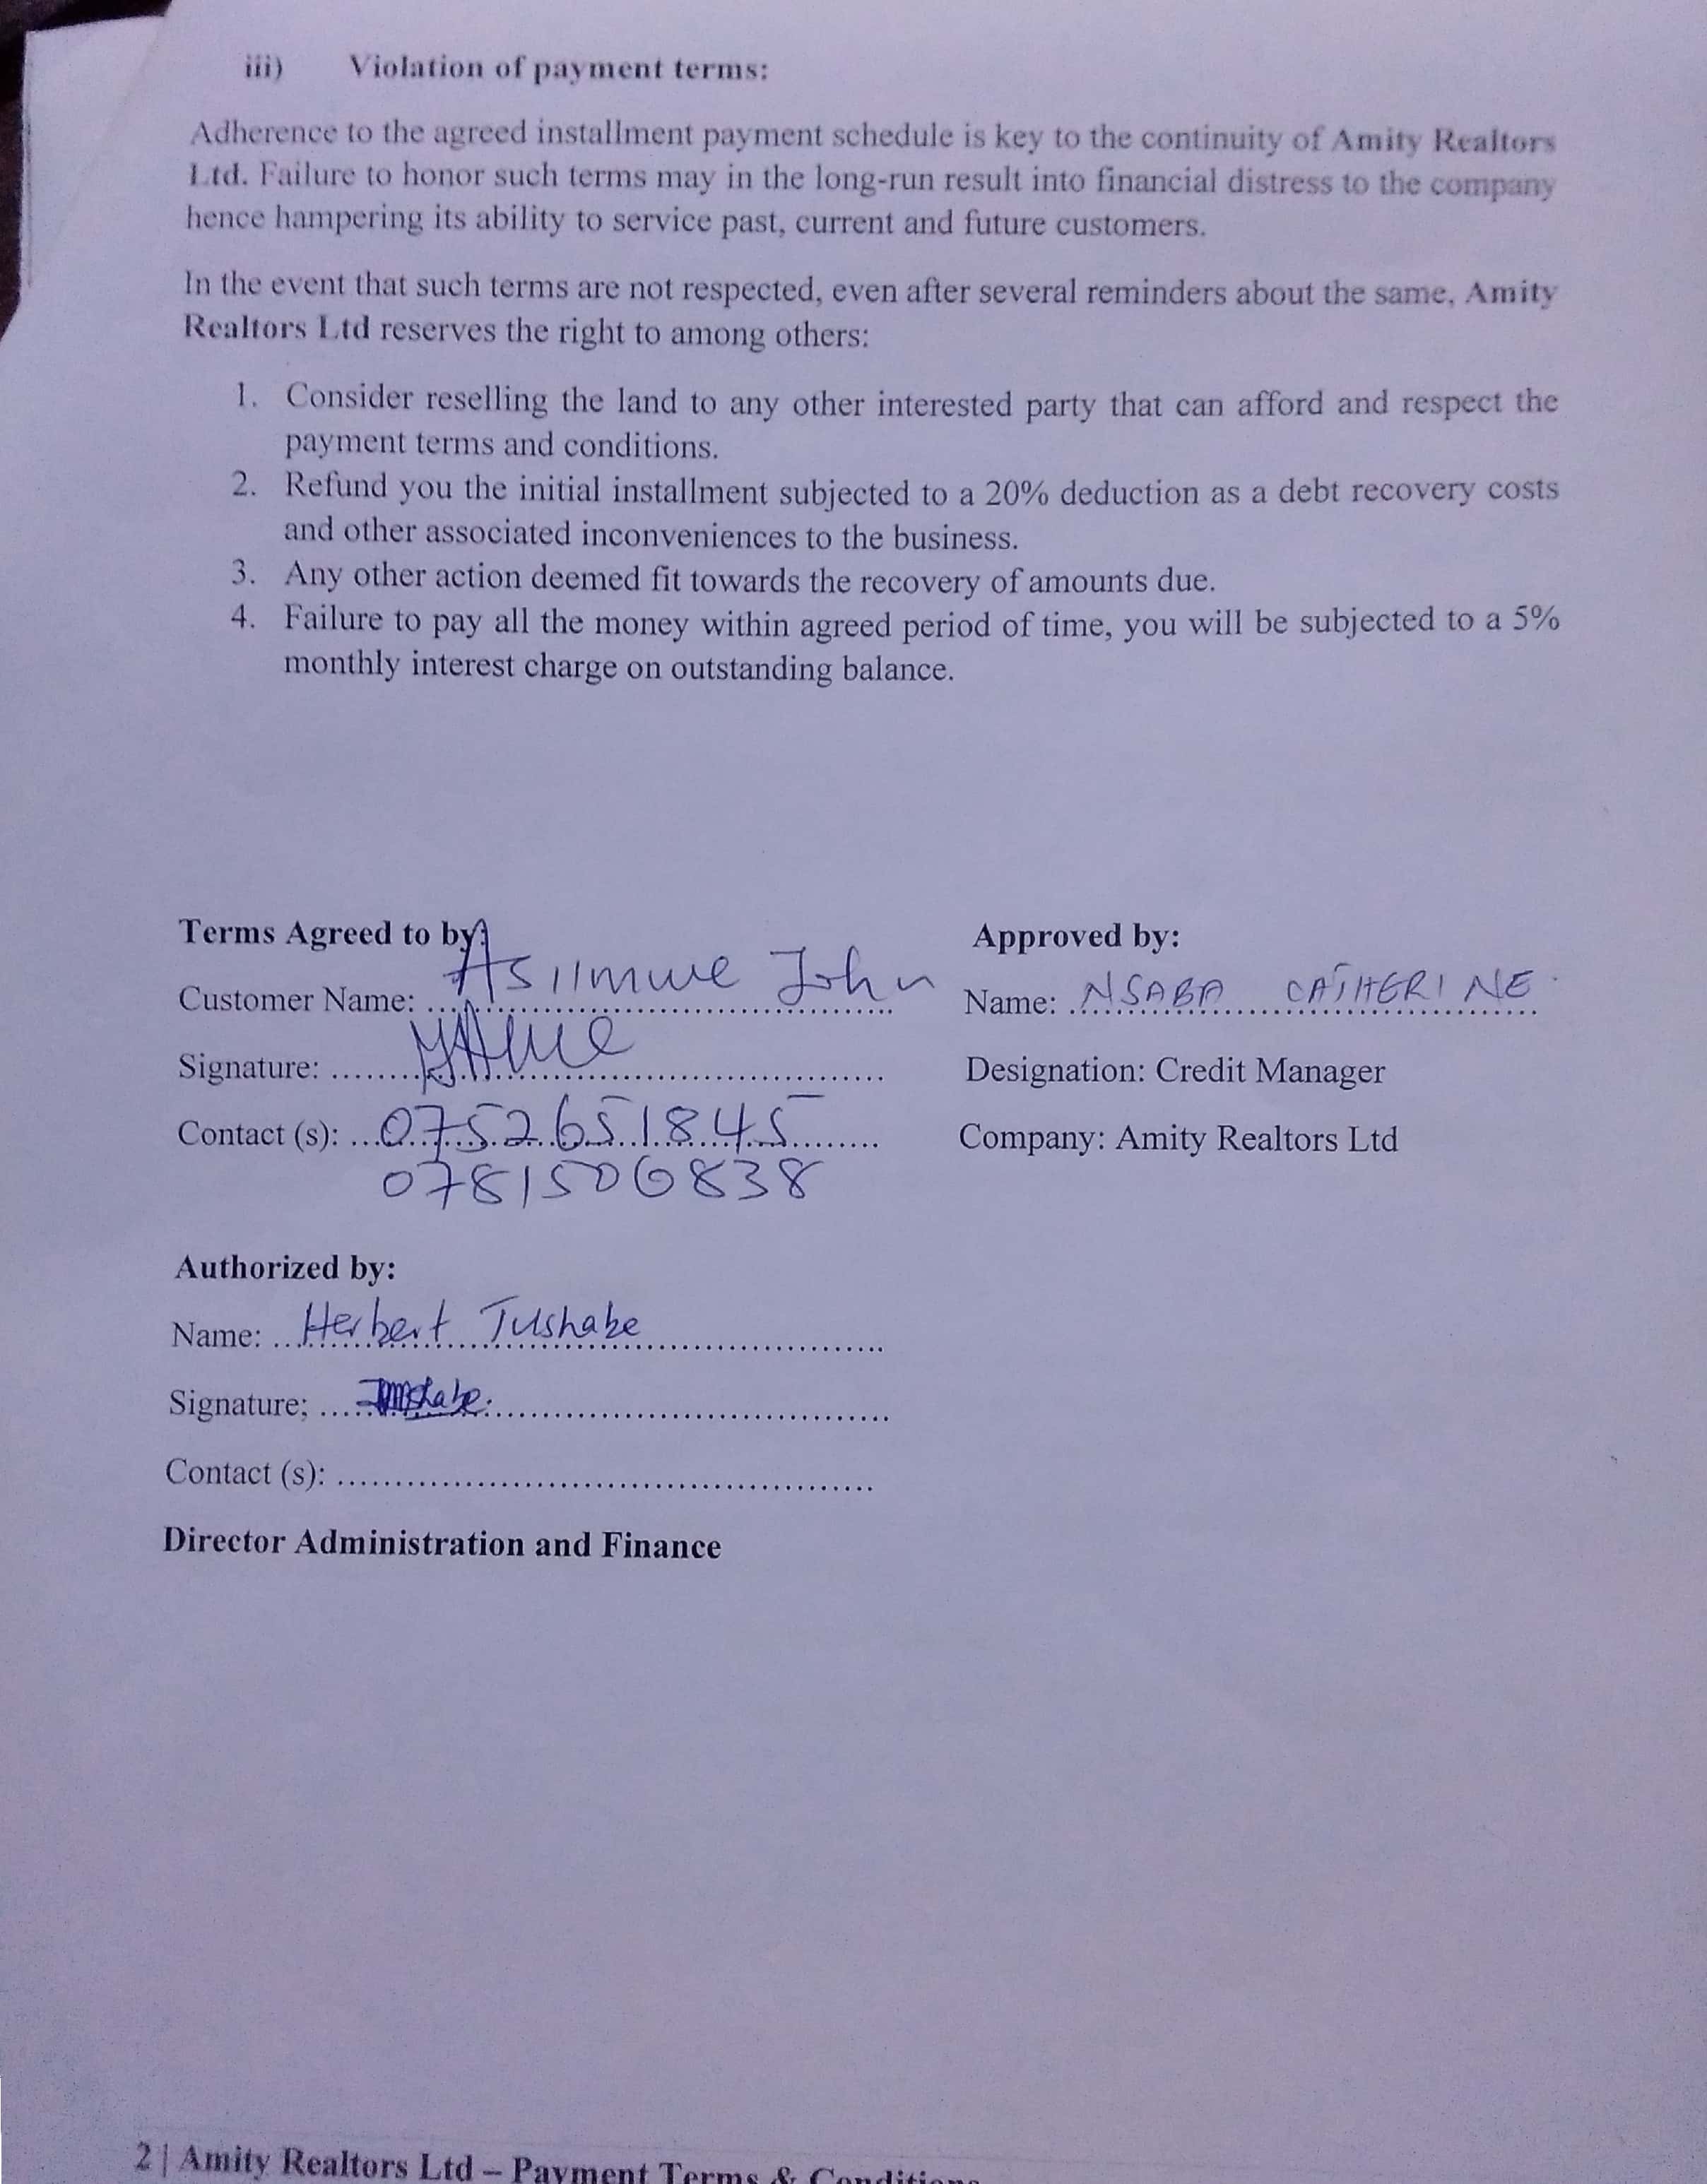 iii) Violation of payment terms:
Adherence to the agreed installment payment schedule is key to the continuity of Amity Realtors
Ltd. Failure to honor such terms may in the long-run result into financial distress to the company
hence hampering its ability to service past, current and future customers.
In the event that such terms are not respected, even after several reminders about the same, Amity
Realtors Ltd reserves the right to among others:
1. Consider reselling the land to any other interested party that can afford and respect the
payment terms and conditions.
2. Refund you the initial installment subjected to a 20% deduction as a debt recovery costs
and other associated inconveniences to the business.
3. Any other action deemed fit towards the recovery of amounts due.
4. Failure to pay all the money within agreed period of time, you will be subjected to a 5%
monthly interest charge on outstanding balance.
Terms Agreed to by:
Customer Name: Asiimwe John
Signature:
Contact (s): 0752651845
0781506838
Approved by:
Name: NSABA CATHERINE
Designation: Credit Manager
Company: Amity Realtors Ltd
Authorized by:
Name: Herbert Tushabe
Signature;
Contact (s):
Director Administration and Finance
2 | Amity Realtors Ltd – Payment Terms & Conditions